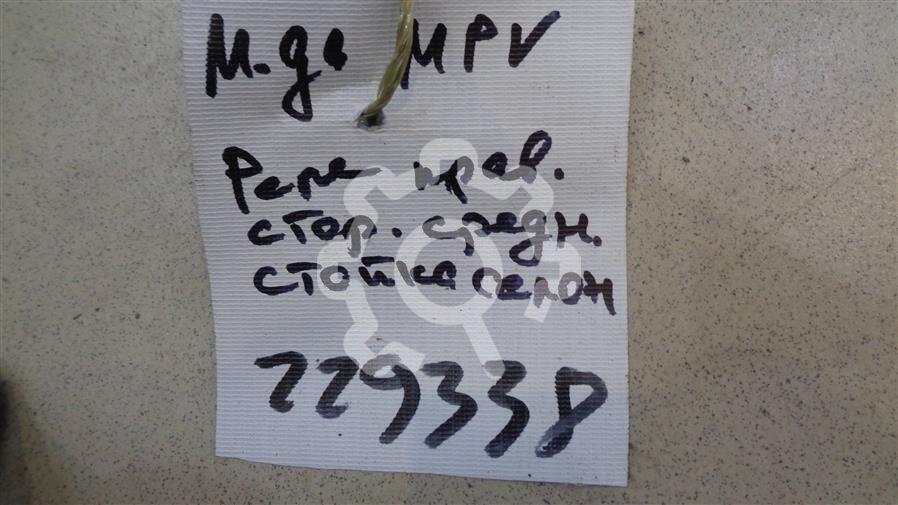 М.да MPV
Реле прав.
стор. средн.
стойка салон
229338